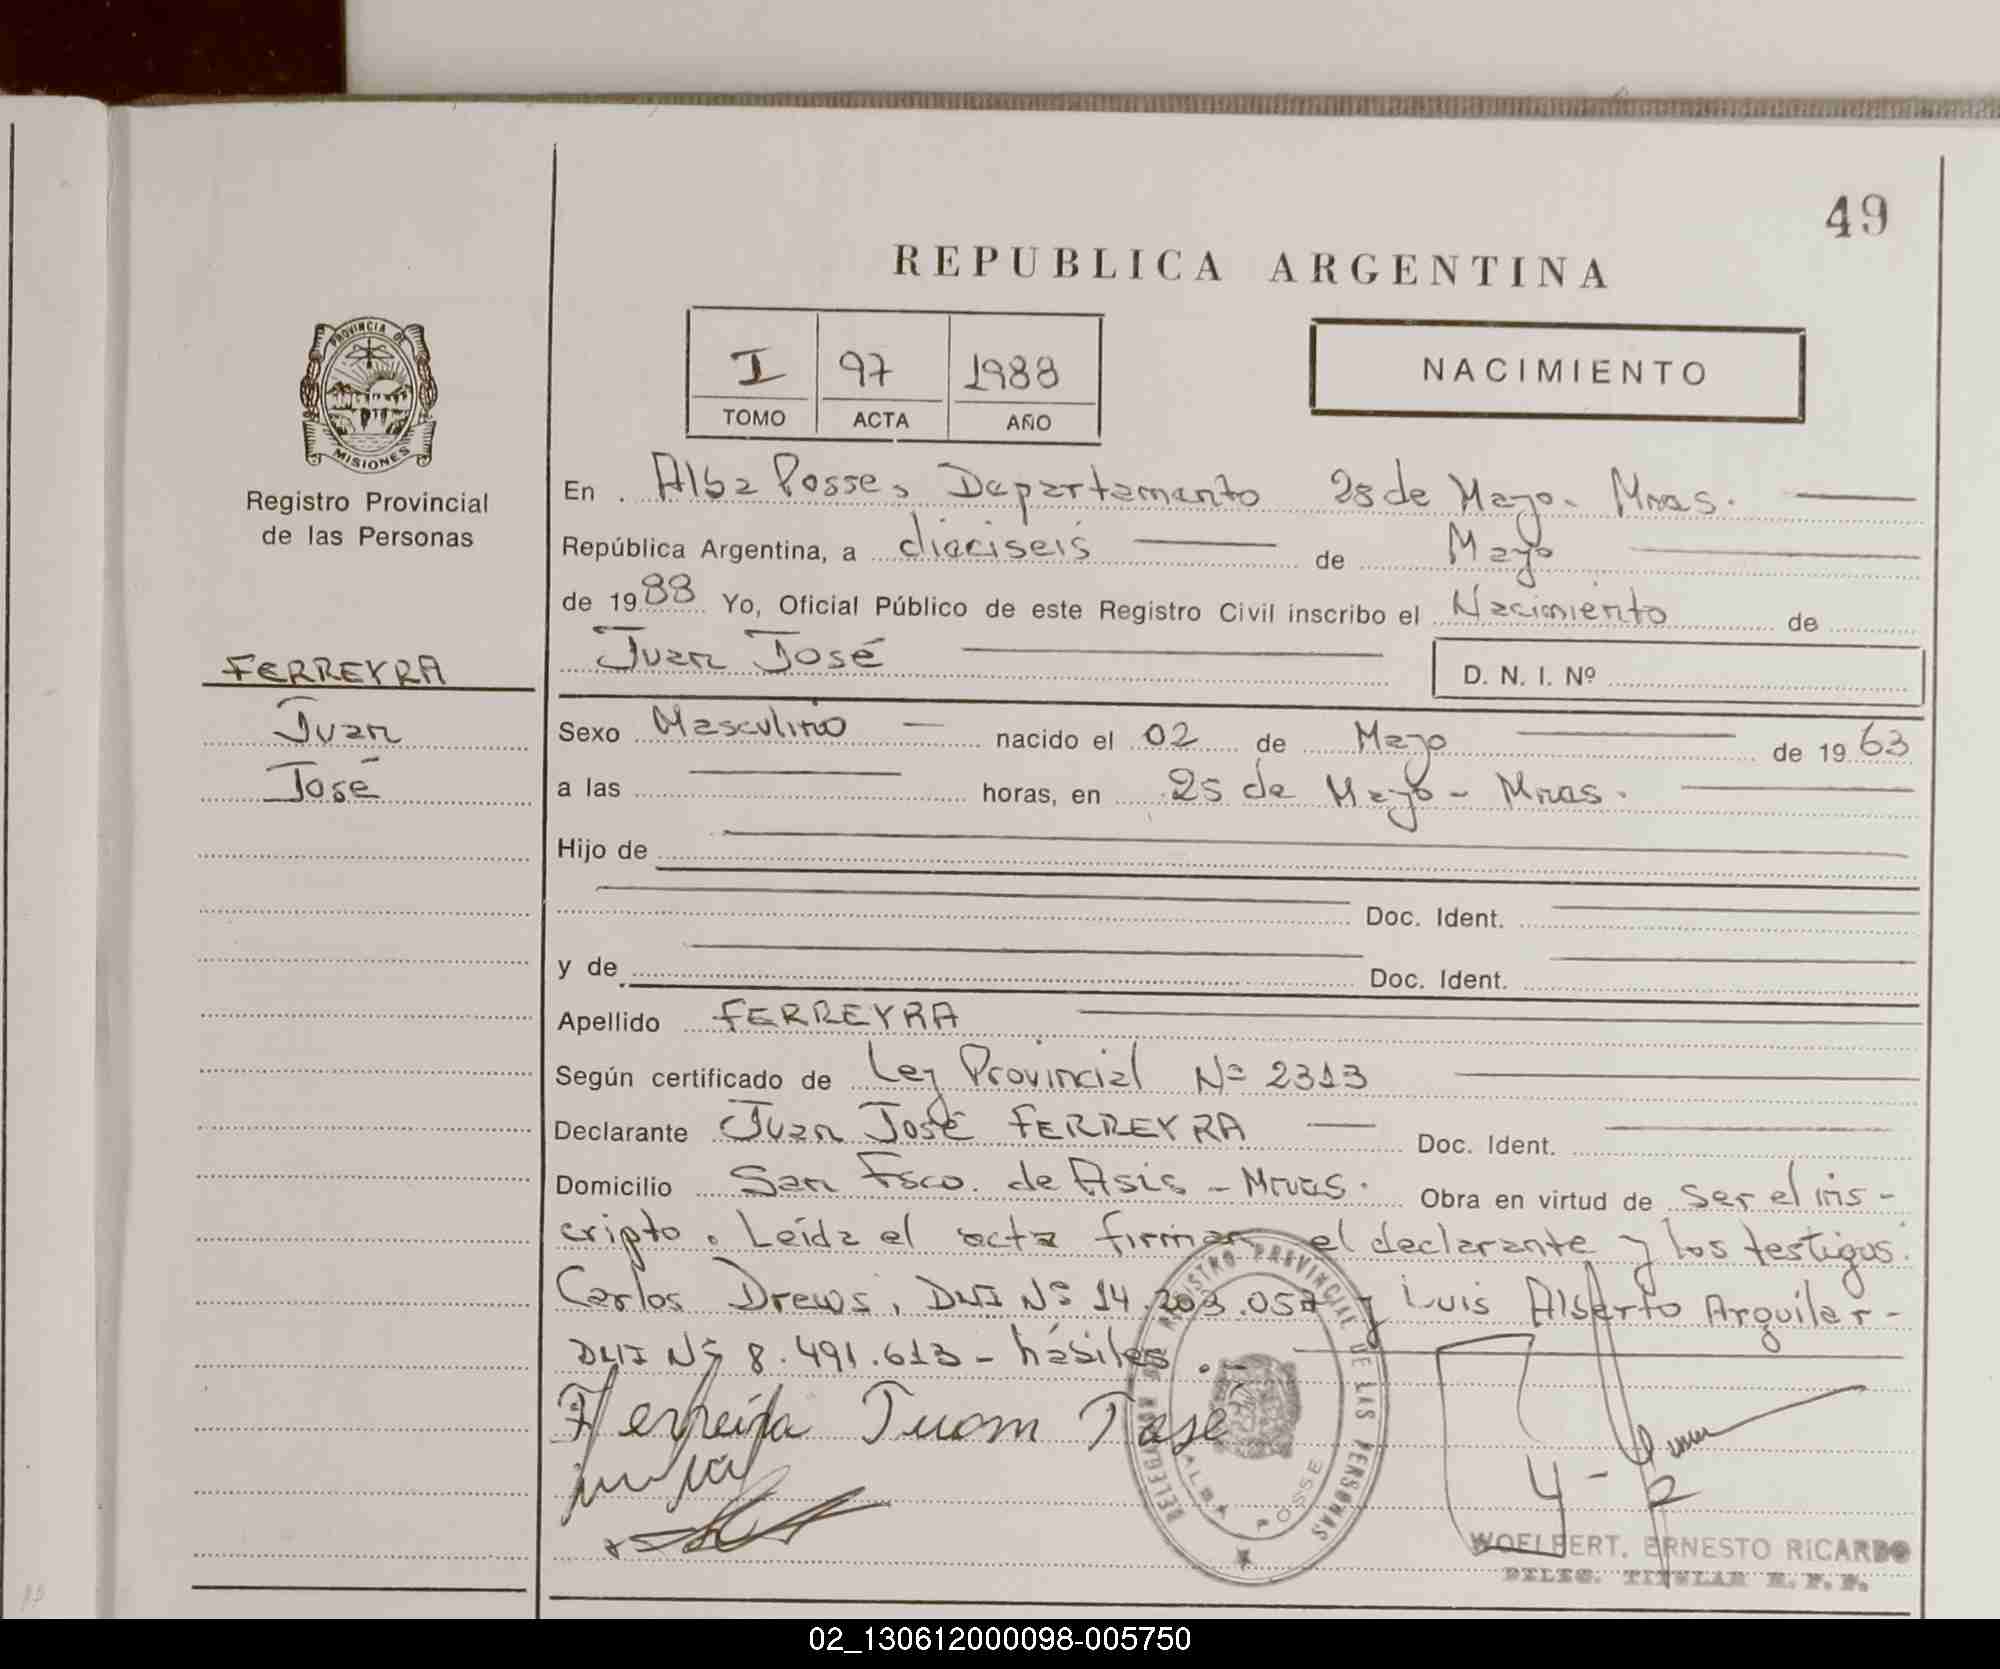 49
REPUBLICA ARGENTINA
PROVINCIA DE
MISIONES
Registro Provincial
de las Personas
I 97 1988
TOMO ACTA AÑO
NACIMIENTO
En Alba Posse, Departamento 25 de Mayo - Mnes.
República Argentina, a dieciseis de Mayo
de 1988 Yo, Oficial Público de este Registro Civil inscribo el Nacimiento de
Juan José
D. N. I. Nº
FERREYRA
Juan
José
Sexo Masculino nacido el 02 de Mayo de 1963
a las horas, en 25 de Mayo - Mnes.
Hijo de
Doc. Ident.
y de Doc. Ident.
Apellido FERREYRA
Según certificado de Ley Provincial Nº 2313
Declarante Juan José FERREYRA Doc. Ident.
Domicilio San Fsco. de Asis - Mnes. Obra en virtud de ser el ins-
cripto. Leída el acta firman el declarante y los testigos:
Carlos Drews, DNI Nº 14.203.057 y Luis Alberto Arguiler -
DNI Nº 8.491.613 - hábiles.-
Ferreira Juan Jose
DE REGISTRO PROVINCIAL DE LAS PERSONAS
ALBA POSSE
WOELFERT, ERNESTO RICARDO
DELEG. TITULAR R. P. P.
02_130612000098-005750